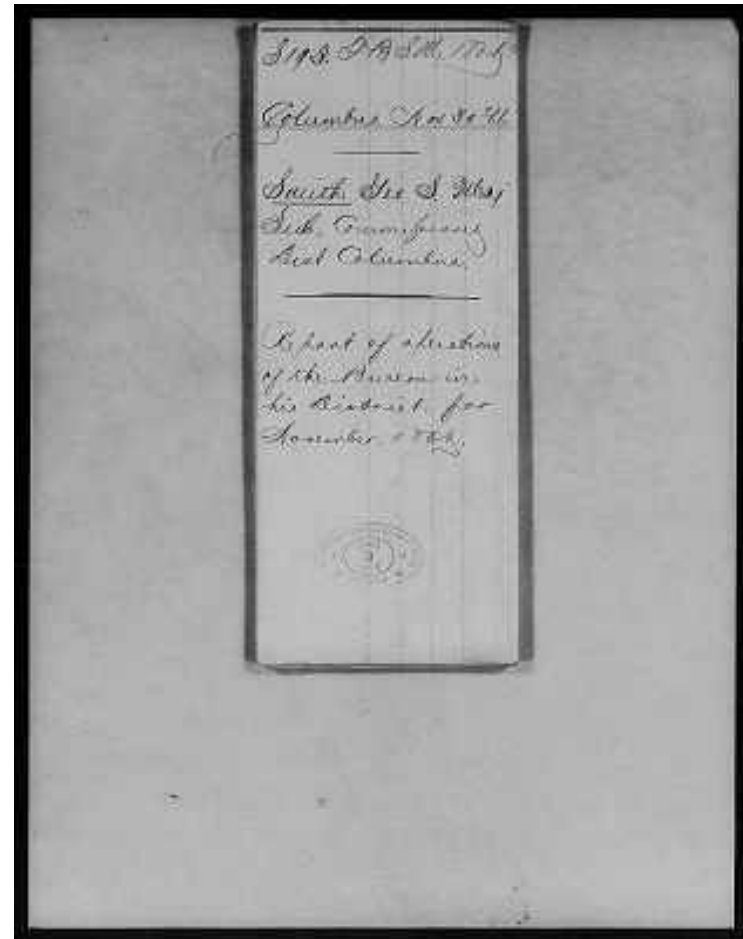 Columbus Nov 30" 66
Smith, Geo S. Maj
Sub. Commissioner
Dist Columbus,
Report of operations
of the Bureau in
his District for
November 1866.